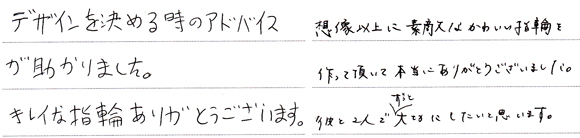 デザインを決める時のアドバイス
が助かりました。
キレイな指輪ありがとうございます。
想像以上に素敵なかわいい指輪を
作って頂いて本当にありがとうございました。
彼と2人でずっと大切にしたいと思います。